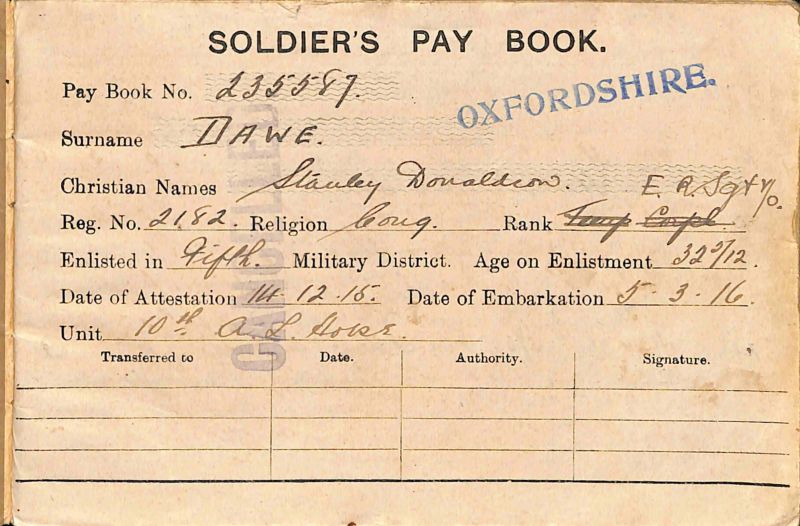 SOLDIER'S PAY BOOK.
Pay Book No. 235587.
OXFORDSHIRE.
Surname DAWE.
Christian Names Stanley Donaldson. E. R. Sgt
Reg. No. 2182. Religion Cong. Rank Temp Corpl.
Enlisted in Fifth. Military District. Age on Enlistment 32 5/12.
Date of Attestation 14. 12. 15. Date of Embarkation 5. 3. 16.
Unit 10th A. L. Horse.
CANCELLED
Transferred to Date. Authority. Signature.